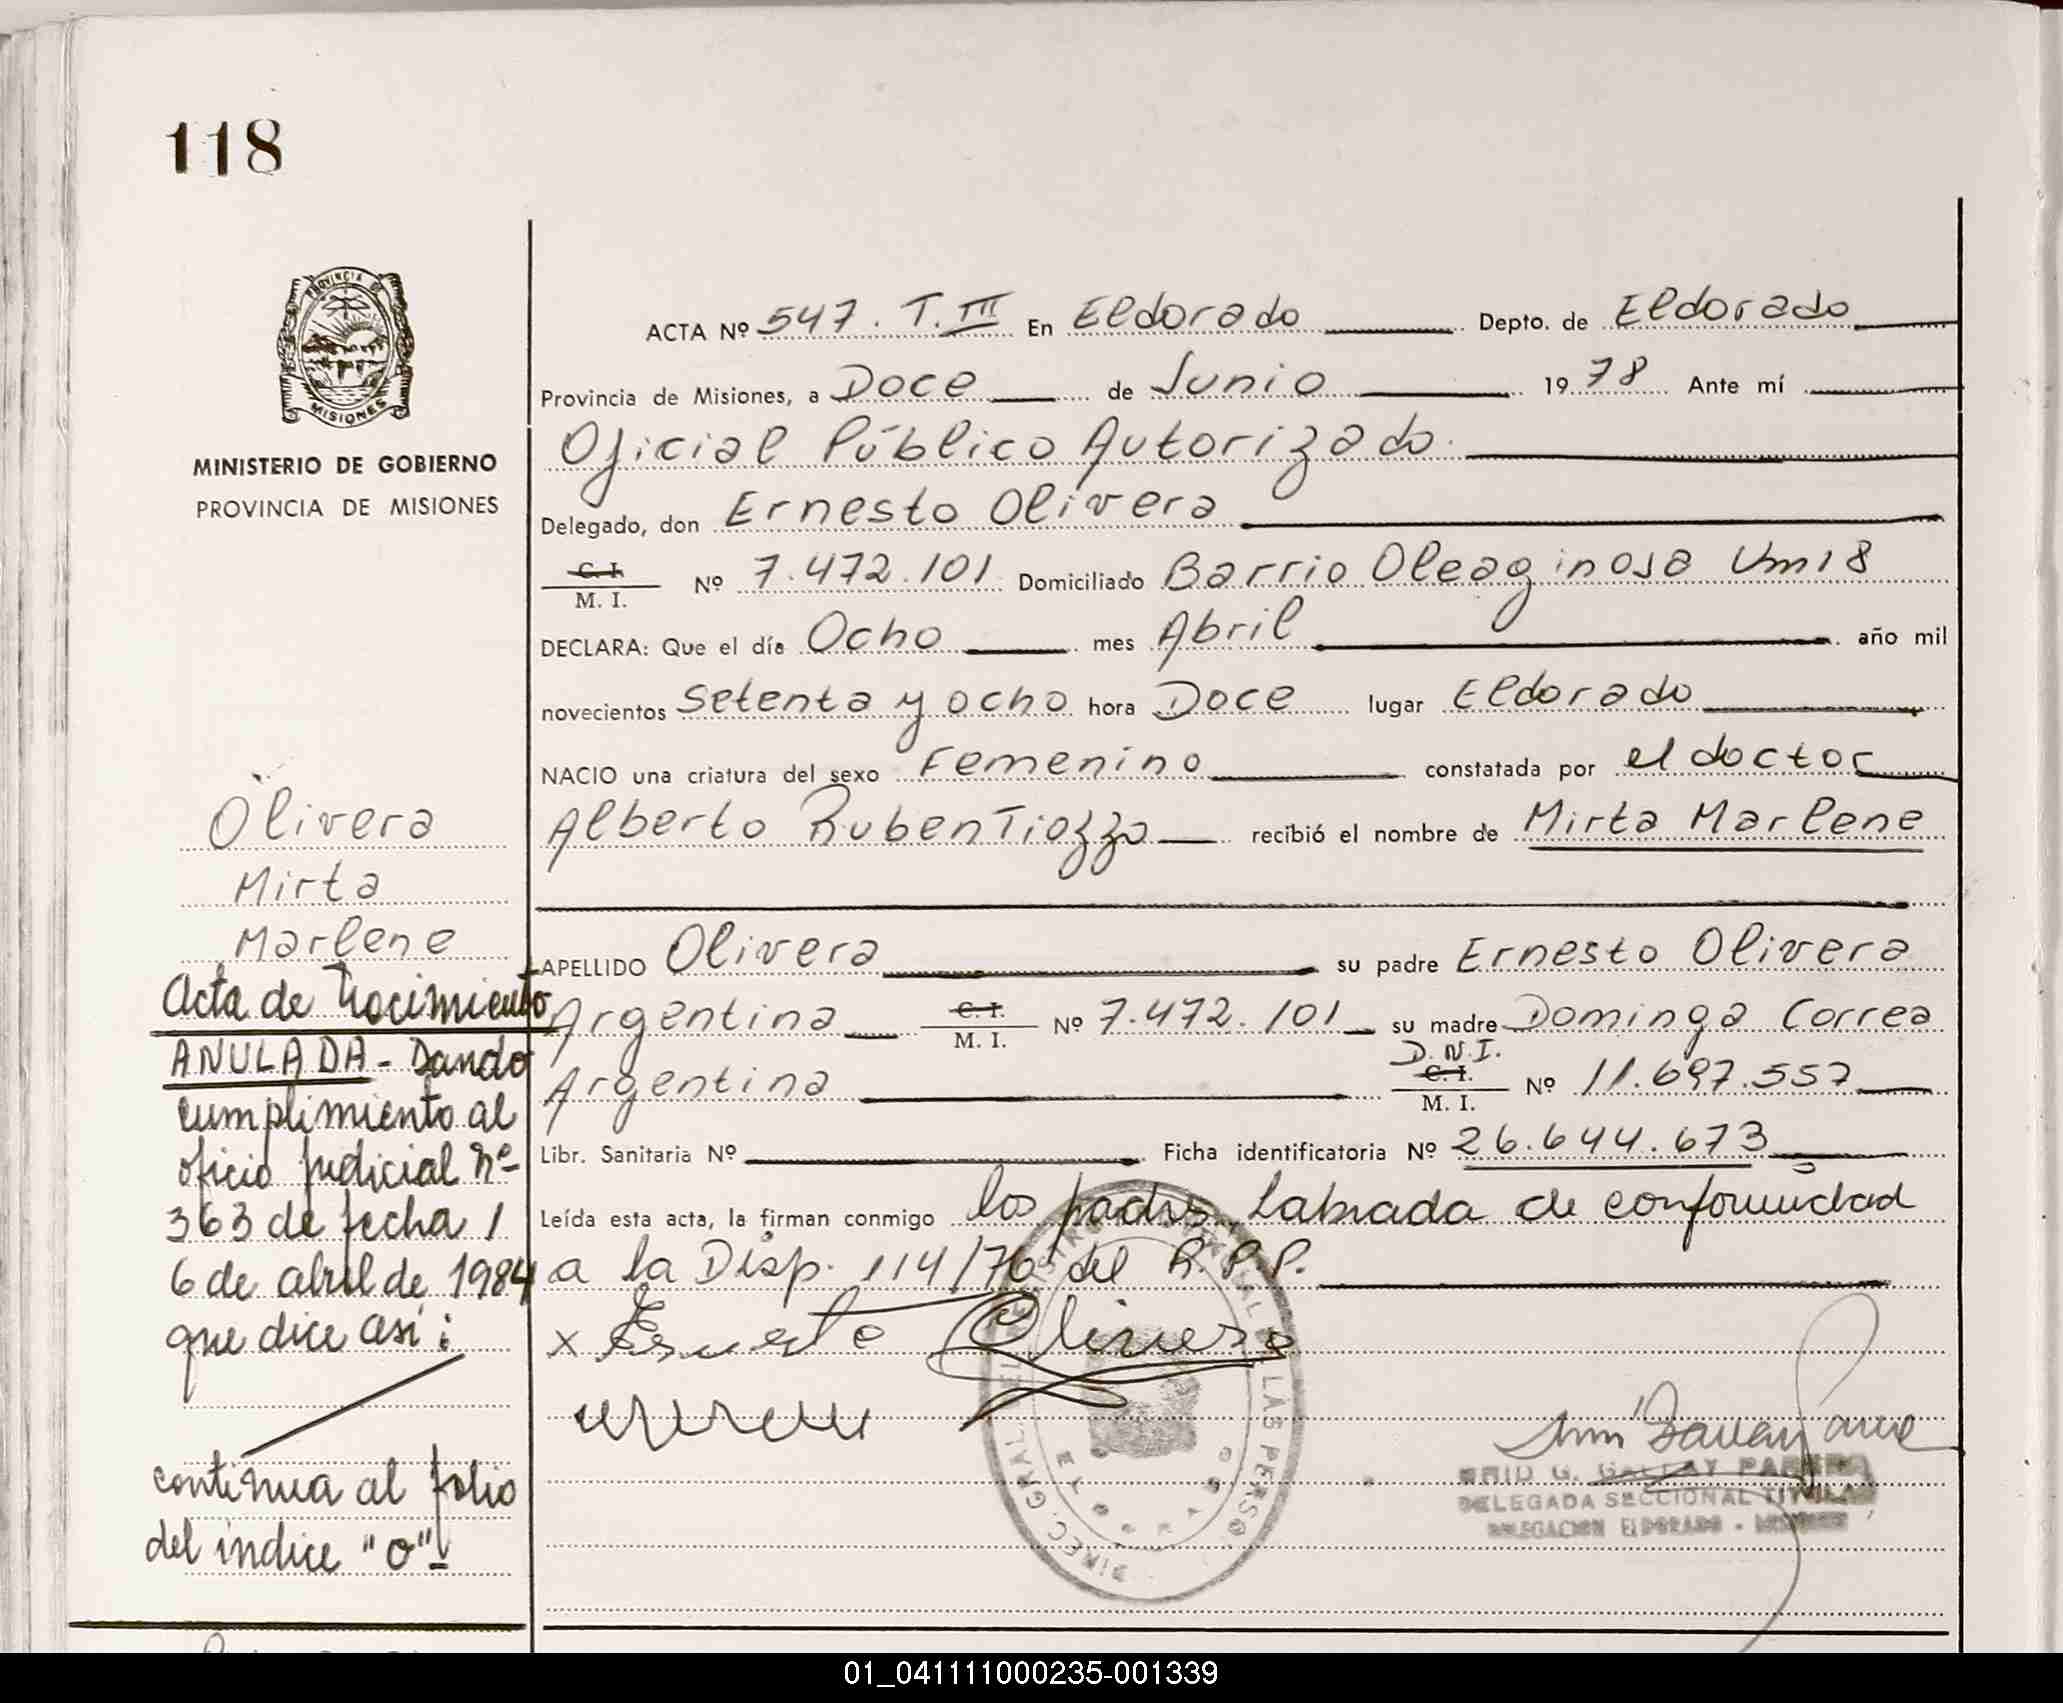 118
PROVINCIA DE
MISIONES
MINISTERIO DE GOBIERNO
PROVINCIA DE MISIONES
Olivera
Mirta
Marlene
Acta de Nacimiento
ANULADA - Dando
cumplimiento al
oficio judicial nº
363 de fecha 1
6 de abril de 1984
que dice así:
continua al folio
del indice "O"-
ACTA Nº 547. T. III En Eldorado Depto. de Eldorado
Provincia de Misiones, a Doce de Junio 1978 Ante mí
Oficial Público Autorizado.
Delegado, don Ernesto Olivera
C. I. M. I. Nº 7.472.101 Domiciliado Barrio Oleaginosa Km18
DECLARA: Que el día Ocho mes Abril año mil
novecientos Setenta y ocho hora Doce lugar Eldorado
NACIO una criatura del sexo Femenino constatada por el doctor
Alberto Ruben Tiozzo recibió el nombre de Mirta Marlene
APELLIDO Olivera su padre Ernesto Olivera
Argentina C. I. M. I. Nº 7.472.101 su madre Dominga Correa
Argentina D.N.I. C. I. M. I. Nº 11.697.557
Libr. Sanitaria Nº Ficha identificatoria Nº 26.644.673
Leída esta acta, la firman conmigo los padres, Labrada de conformidad
a la Disp. 114/76 del R.P.P.
x Ernesto Olivera
DIREC. GRAL. LAS PERSO
DELEGADA SECCIONAL
DELEGACION ELDORADO - MISIONES
01_041111000235-001339